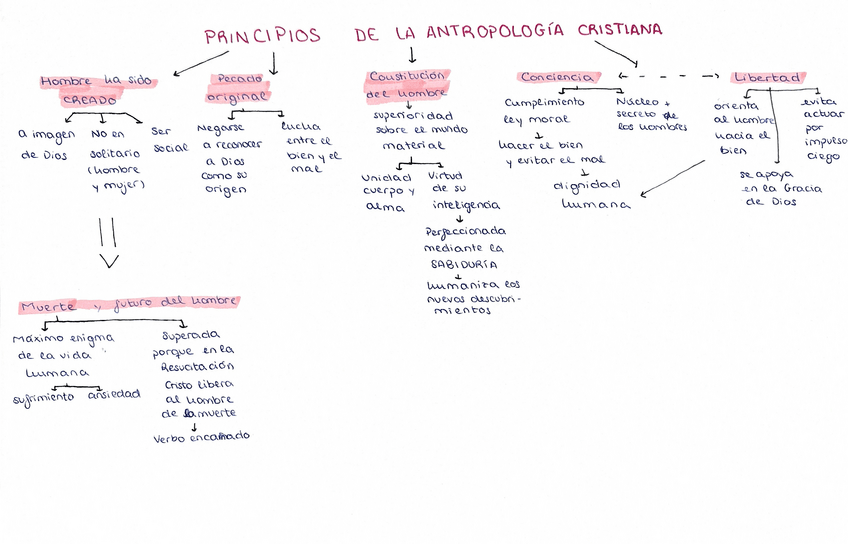 PRINCIPIOS DE LA ANTROPOLOGÍA CRISTIANA
Hombre ha sido
CREADO
a imagen
de Dios
No en
solitario
(hombre
y mujer)
Ser
social
Pecado
original
Negarse
a reconocer
a Dios
como su
origen
lucha
entre el
bien y el
mal
Constitución
del hombre
superioridad
sobre el mundo
material
Unidad
cuerpo y
alma
Virtud
de su
inteligencia
Perfeccionada
mediante la
SABIDURÍA
humaniza los
nuevos descubri-
mientos
Conciencia
Cumplimiento
ley moral
hacer el bien
y evitar el mal
dignidad
humana
Núcleo +
secreto de
los hombres
Libertad
orienta
al hombre
hacia el
bien
se apoya
en la Gracia
de Dios
evita
actuar
por
impulso
ciego
Muerte y futuro del hombre
Máximo enigma
de la vida
humana
sufrimiento ansiedad
Superada
porque en la
Resucitación
Cristo libera
al hombre
de la muerte
Verbo encarnado